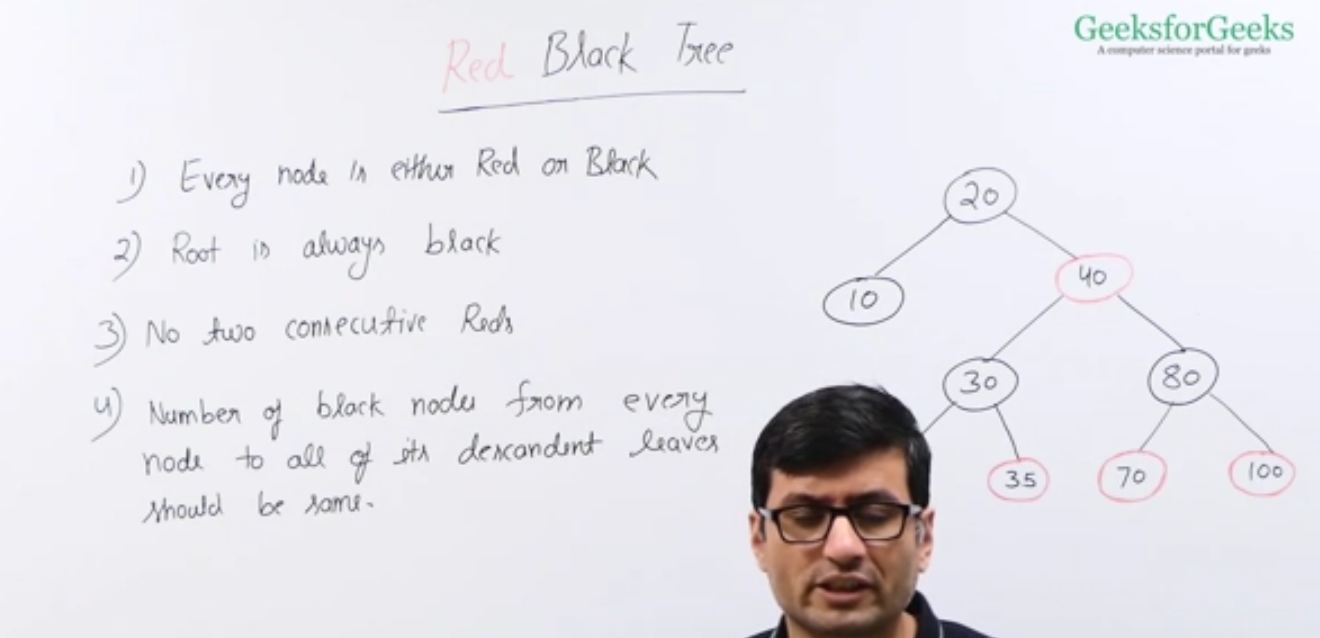 GeeksforGeeks
A computer science portal for geeks
Red Black Tree
1) Every node is either Red or Black
2) Root is always black
3) No two consecutive Reds
4) Number of black nodes from every
node to all of its descendent leaves
should be same.
20
10
40
30
80
35
70
100